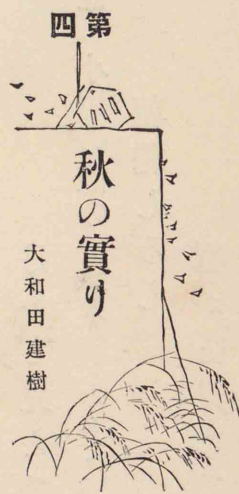 第四
秋の實り
大和田建樹